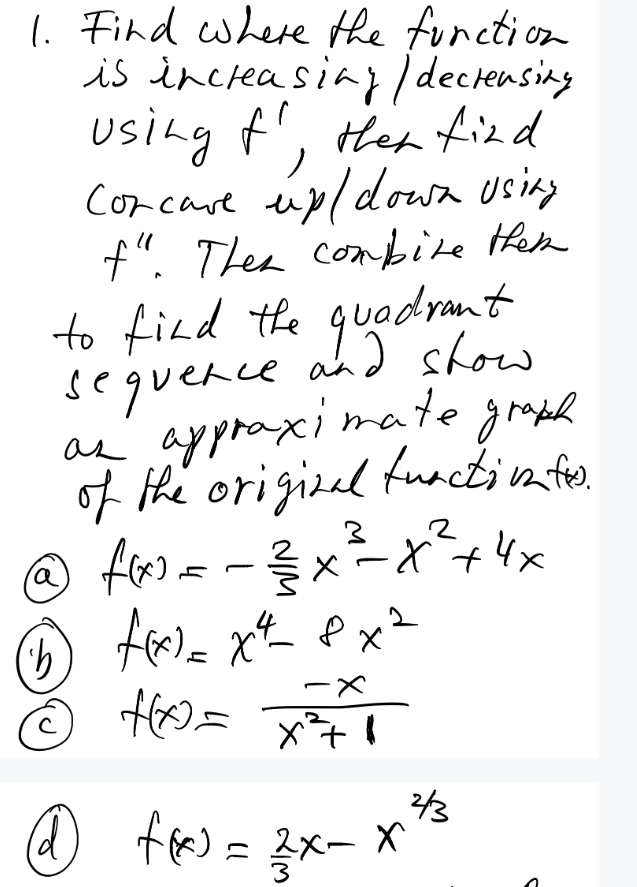 1. Find where the function
is increasing / decreasing
using f', then find
concave up/down using
f". Then combine them
to find the quadrant
sequence and show
an appraximate graph
of the original function f(x).
(a) f(x) = - 2/3 x³ - x² + 4x
(b) f(x) = x⁴ - 8x²
(c) f(x) = -x / (x² + 1)
(d) f(x) = 2/3 x - x^(2/3)